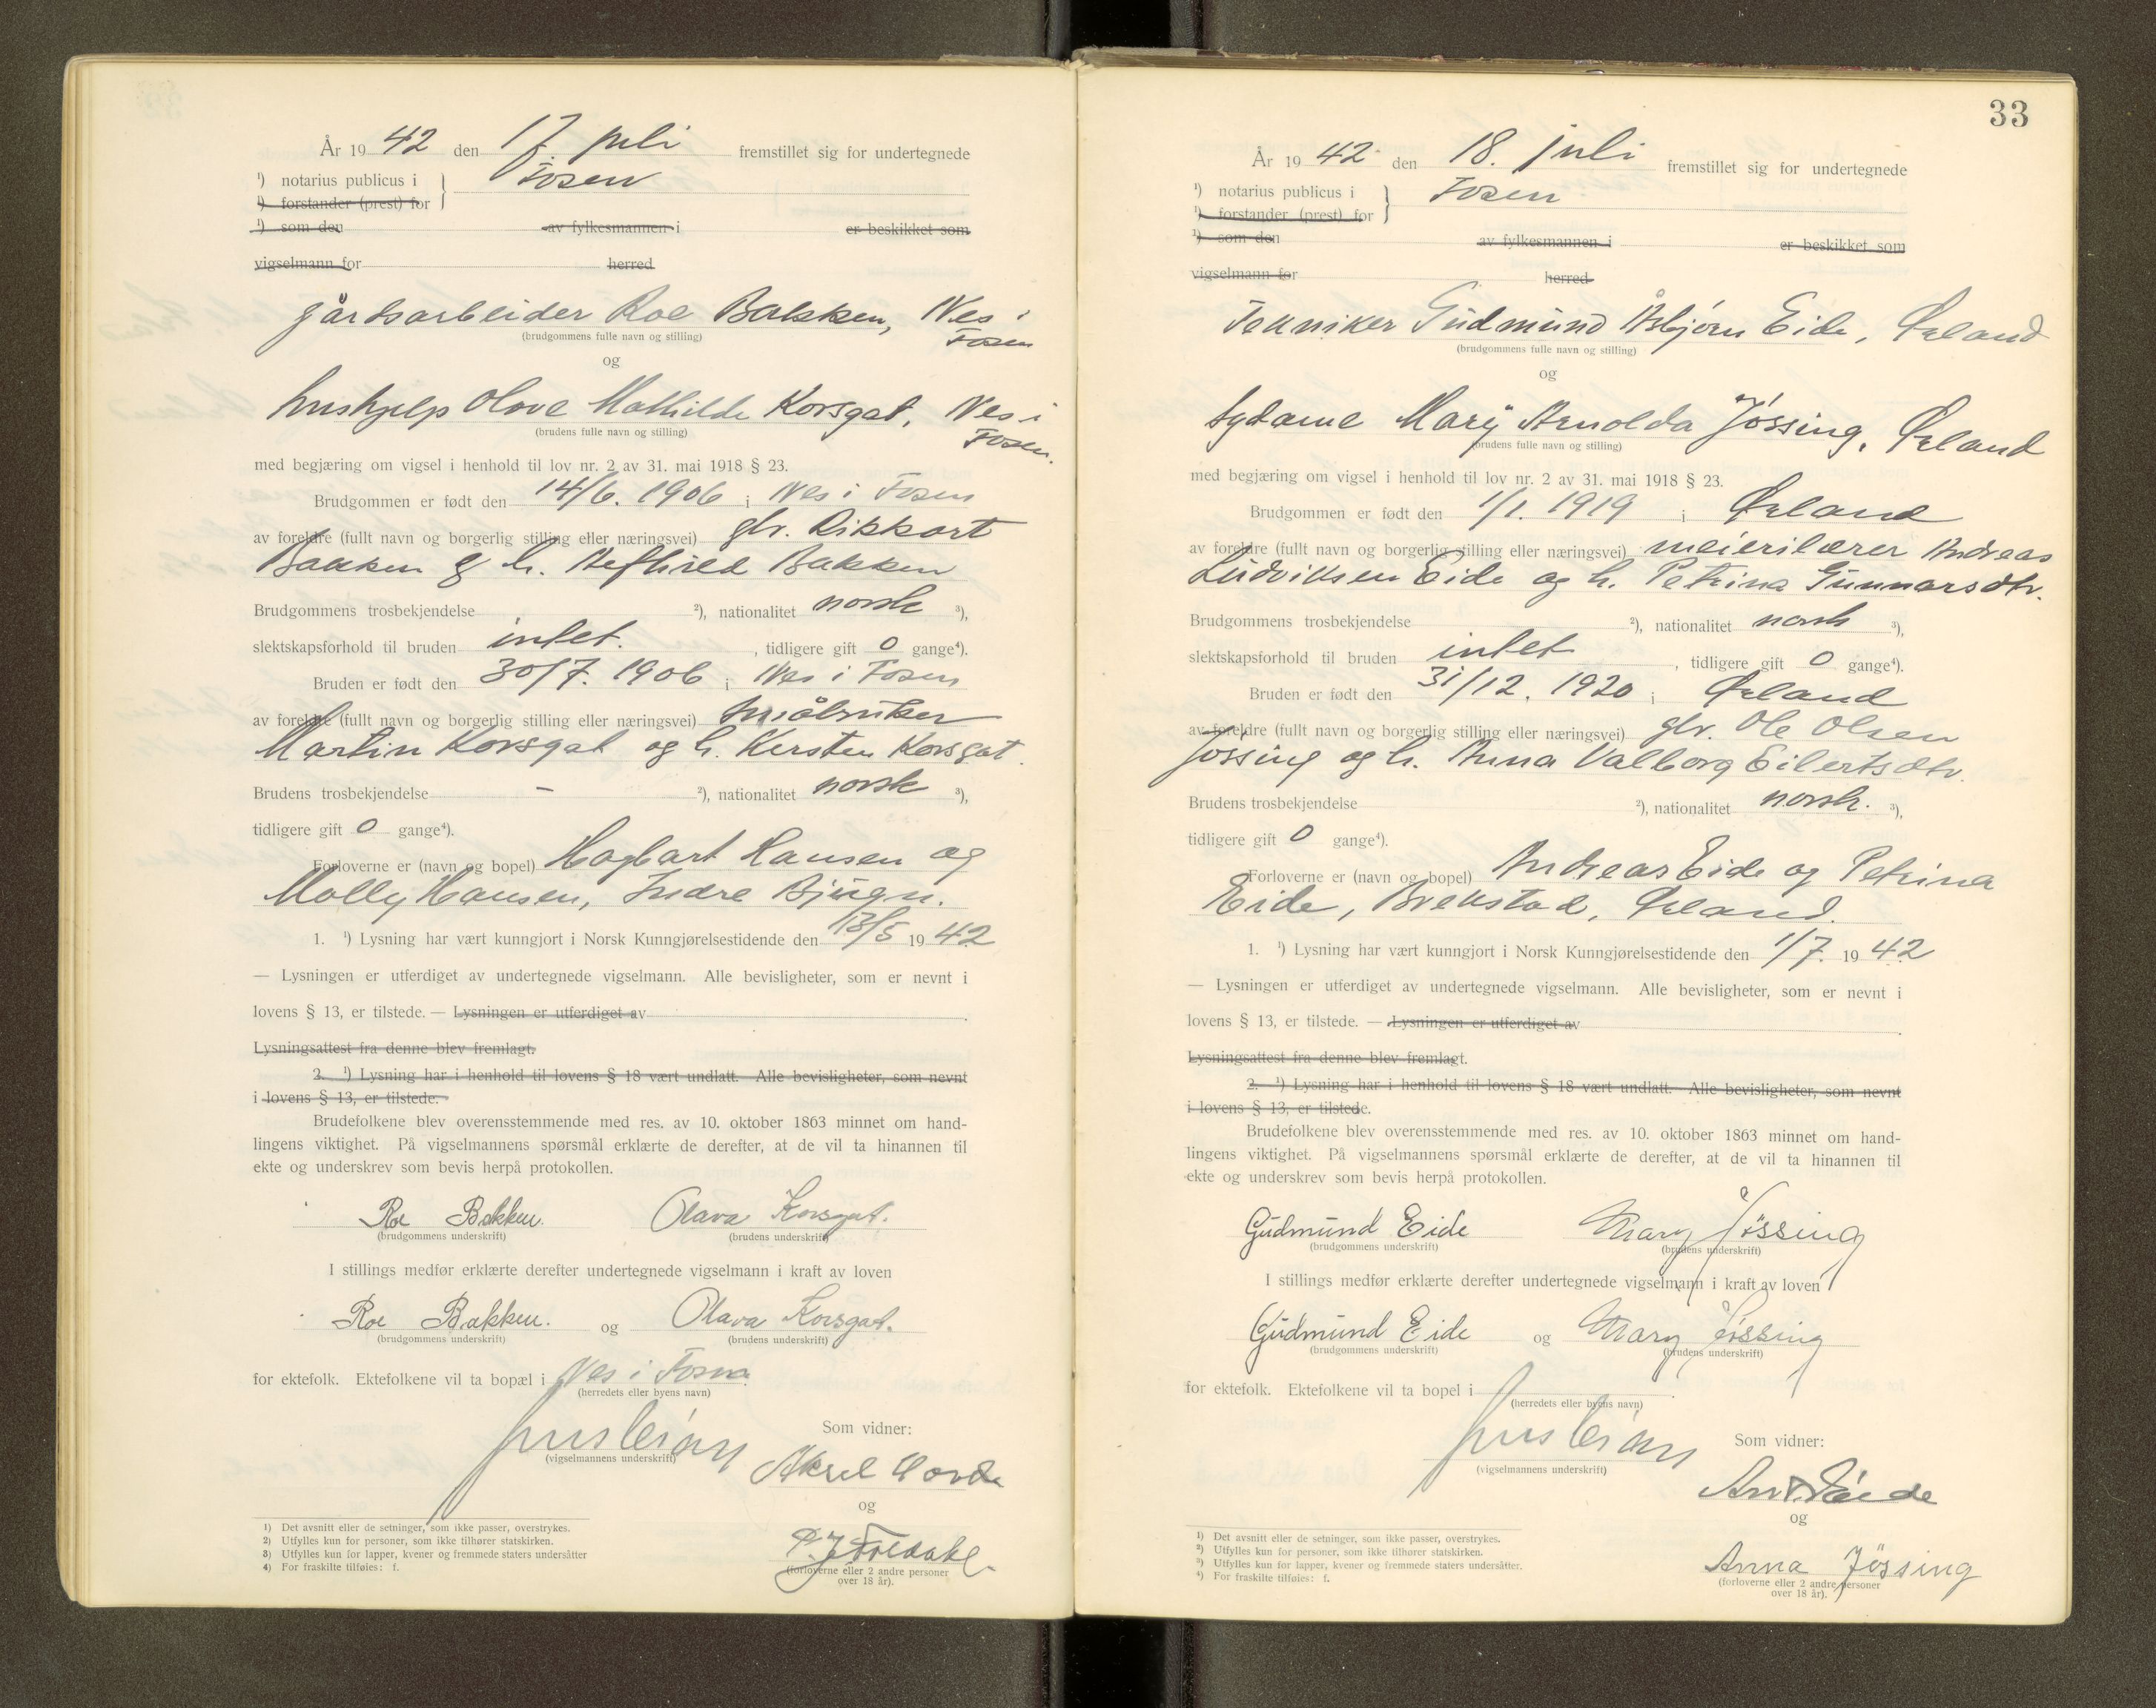 År 1942 den 17. juli fremstillet sig for undertegnede
¹) notarius publicus i Fosen
¹) forstander (prest) for
¹) som den av fylkesmannen i er beskikket som
vigselmann for herred
gårdsarbeider Roe Bakken, Nes i
Fosen
(brudgommens fulle navn og stilling)
og
hushjelp Olove Mathilde Korsgat, Nes i
Fosen.
(brudens fulle navn og stilling)
med begjæring om vigsel i henhold til lov nr. 2 av 31. mai 1918 § 23.
Brudgommen er født den 14/6. 1906 i Nes i Fosen
av foreldre (fullt navn og borgerlig stilling eller næringsvei) gbr. Rikkart
Bakken & h. Bakken
Brudgommens trosbekjendelse ²), nationalitet norsk ³),
slektskapsforhold til bruden intet. , tidligere gift 0 gange⁴).
Bruden er født den 30/7. 1906 i Nes i Fosen
av foreldre (fullt navn og borgerlig stilling eller næringsvei) småbruker
Martin Korsgat og h. Kersten Korsgat.
Brudens trosbekjendelse - ²), nationalitet norsk ³),
tidligere gift 0 gange⁴).
Forloverne er (navn og bopel) Hagbart Hansen og
Molly Hansen, Indre Bjugn.
1. ¹) Lysning har vært kunngjort i Norsk Kunngjørelsestidende den 13/5 1942
— Lysningen er utferdiget av undertegnede vigselmann. Alle bevisligheter, som er nevnt i
lovens § 13, er tilstede. — Lysningen er utferdiget av .
Lysningsattest fra denne blev fremlagt.
2. ¹) Lysning har i henhold til lovens § 18 vært undlatt. Alle bevisligheter, som nevnt
i lovens § 13, er tilstede.
Brudefolkene blev overensstemmende med res. av 10. oktober 1863 minnet om hand-
lingens viktighet. På vigselmannens spørsmål erklærte de derefter, at de vil ta hinannen til
ekte og underskrev som bevis herpå protokollen.
Roe Bakken. Olava Korsgat.
(brudgommens underskrift) (brudens underskrift)
I stillings medfør erklærte derefter undertegnede vigselmann i kraft av loven
Roe Bakken. og Olava Korsgat.
(brudgommens underskrift) (brudens underskrift)
for ektefolk. Ektefolkene vil ta bopæl i Nes i Fosna
(herredets eller byens navn)
Som vidner:
(vigselmannens underskrift)
Aksel Hovde
og
(forloverne eller 2 andre personer
over 18 år).
1) Det avsnitt eller de setninger, som ikke passer, overstrykes.
2) Utfylles kun for personer, som ikke tilhører statskirken.
3) Utfylles kun for lapper, kvener og fremmede staters undersåtter
4) For fraskilte tilføies: f.
33
År 1942 den 18. juli fremstillet sig for undertegnede
¹) notarius publicus i Fosen
¹) forstander (prest) for
¹) som den av fylkesmannen i er beskikket som
vigselmann for herred
Tekniker Gudmund Asbjørn Eide, Ørland
(brudgommens fulle navn og stilling)
og
sydame Mary Arnolda Jøssing, Ørland
(brudens fulle navn og stilling)
med begjæring om vigsel i henhold til lov nr. 2 av 31. mai 1918 § 23.
Brudgommen er født den 1/1. 1919 i Ørland
av foreldre (fullt navn og borgerlig stilling eller næringsvei) meierilærer Andreas
Ludviksen Eide og h. Petrina Gunnarsdtr.
Brudgommens trosbekjendelse ²), nationalitet norsk ³),
slektskapsforhold til bruden intet , tidligere gift 0 gange⁴).
Bruden er født den 31/12. 1920 i Ørland
av foreldre (fullt navn og borgerlig stilling eller næringsvei) gbr. Ole Olsen
Jøssing og h. Anna Valborg Eilertsdtr.
Brudens trosbekjendelse ²), nationalitet norsk. ³),
tidligere gift 0 gange⁴).
Forloverne er (navn og bopel) Andreas Eide og Petrina
Eide, Brekstad, Ørland.
1. ¹) Lysning har vært kunngjort i Norsk Kunngjørelsestidende den 1/7. 1942
— Lysningen er utferdiget av undertegnede vigselmann. Alle bevisligheter, som er nevnt i
lovens § 13, er tilstede. — Lysningen er utferdiget av .
Lysningsattest fra denne blev fremlagt.
2. ¹) Lysning har i henhold til lovens § 18 vært undlatt. Alle bevisligheter, som nevnt
i lovens § 13, er tilstede.
Brudefolkene blev overensstemmende med res. av 10. oktober 1863 minnet om hand-
lingens viktighet. På vigselmannens spørsmål erklærte de derefter, at de vil ta hinannen til
ekte og underskrev som bevis herpå protokollen.
Gudmund Eide Mary Jøssing
(brudgommens underskrift) (brudens underskrift)
I stillings medfør erklærte derefter undertegnede vigselmann i kraft av loven
Gudmund Eide og Mary Jøssing
(brudgommens underskrift) (brudens underskrift)
for ektefolk. Ektefolkene vil ta bopel i .
(herredets eller byens navn)
Som vidner:
(vigselmannens underskrift)
Eide
og
Anna Jøssing
(forloverne eller 2 andre personer
over 18 år).
¹) Det avsnitt eller de setninger, som ikke passer, overstrykes.
²) Utfylles kun for personer, som ikke tilhører statskirken.
³) Utfylles kun for lapper, kvener og fremmede staters undersåtter.
⁴) For fraskilte tilføies: f.